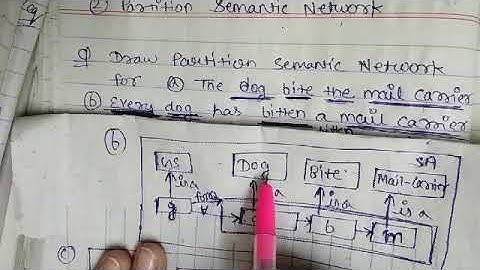 ② Partition Semantic Network
Q Draw Partition Semantic Network
for ⓐ The dog bite the mail carrier
ⓑ Every dog has bitten a mail carrier
ⓑ
SA
GS Dog Bite Mail-carrier
is a is a is a is a
g form b m
∀
ⓒ